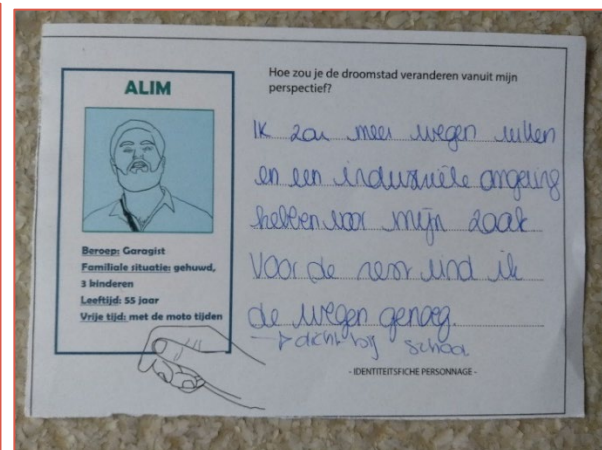 ALIM
Beroep: Garagist
Familiale situatie: gehuwd,
3 kinderen
Leeftijd: 55 jaar
Vrije tijd: met de moto tijden
Hoe zou je de droomstad veranderen vanuit mijn
perspectief?
Ik zou meer wegen willen
en een industriële omgeving
hebben voor mijn zaak
Voor de rest vind ik
de wegen genoeg.
→ dicht bij school
- IDENTITEITSFICHE PERSONNAGE -